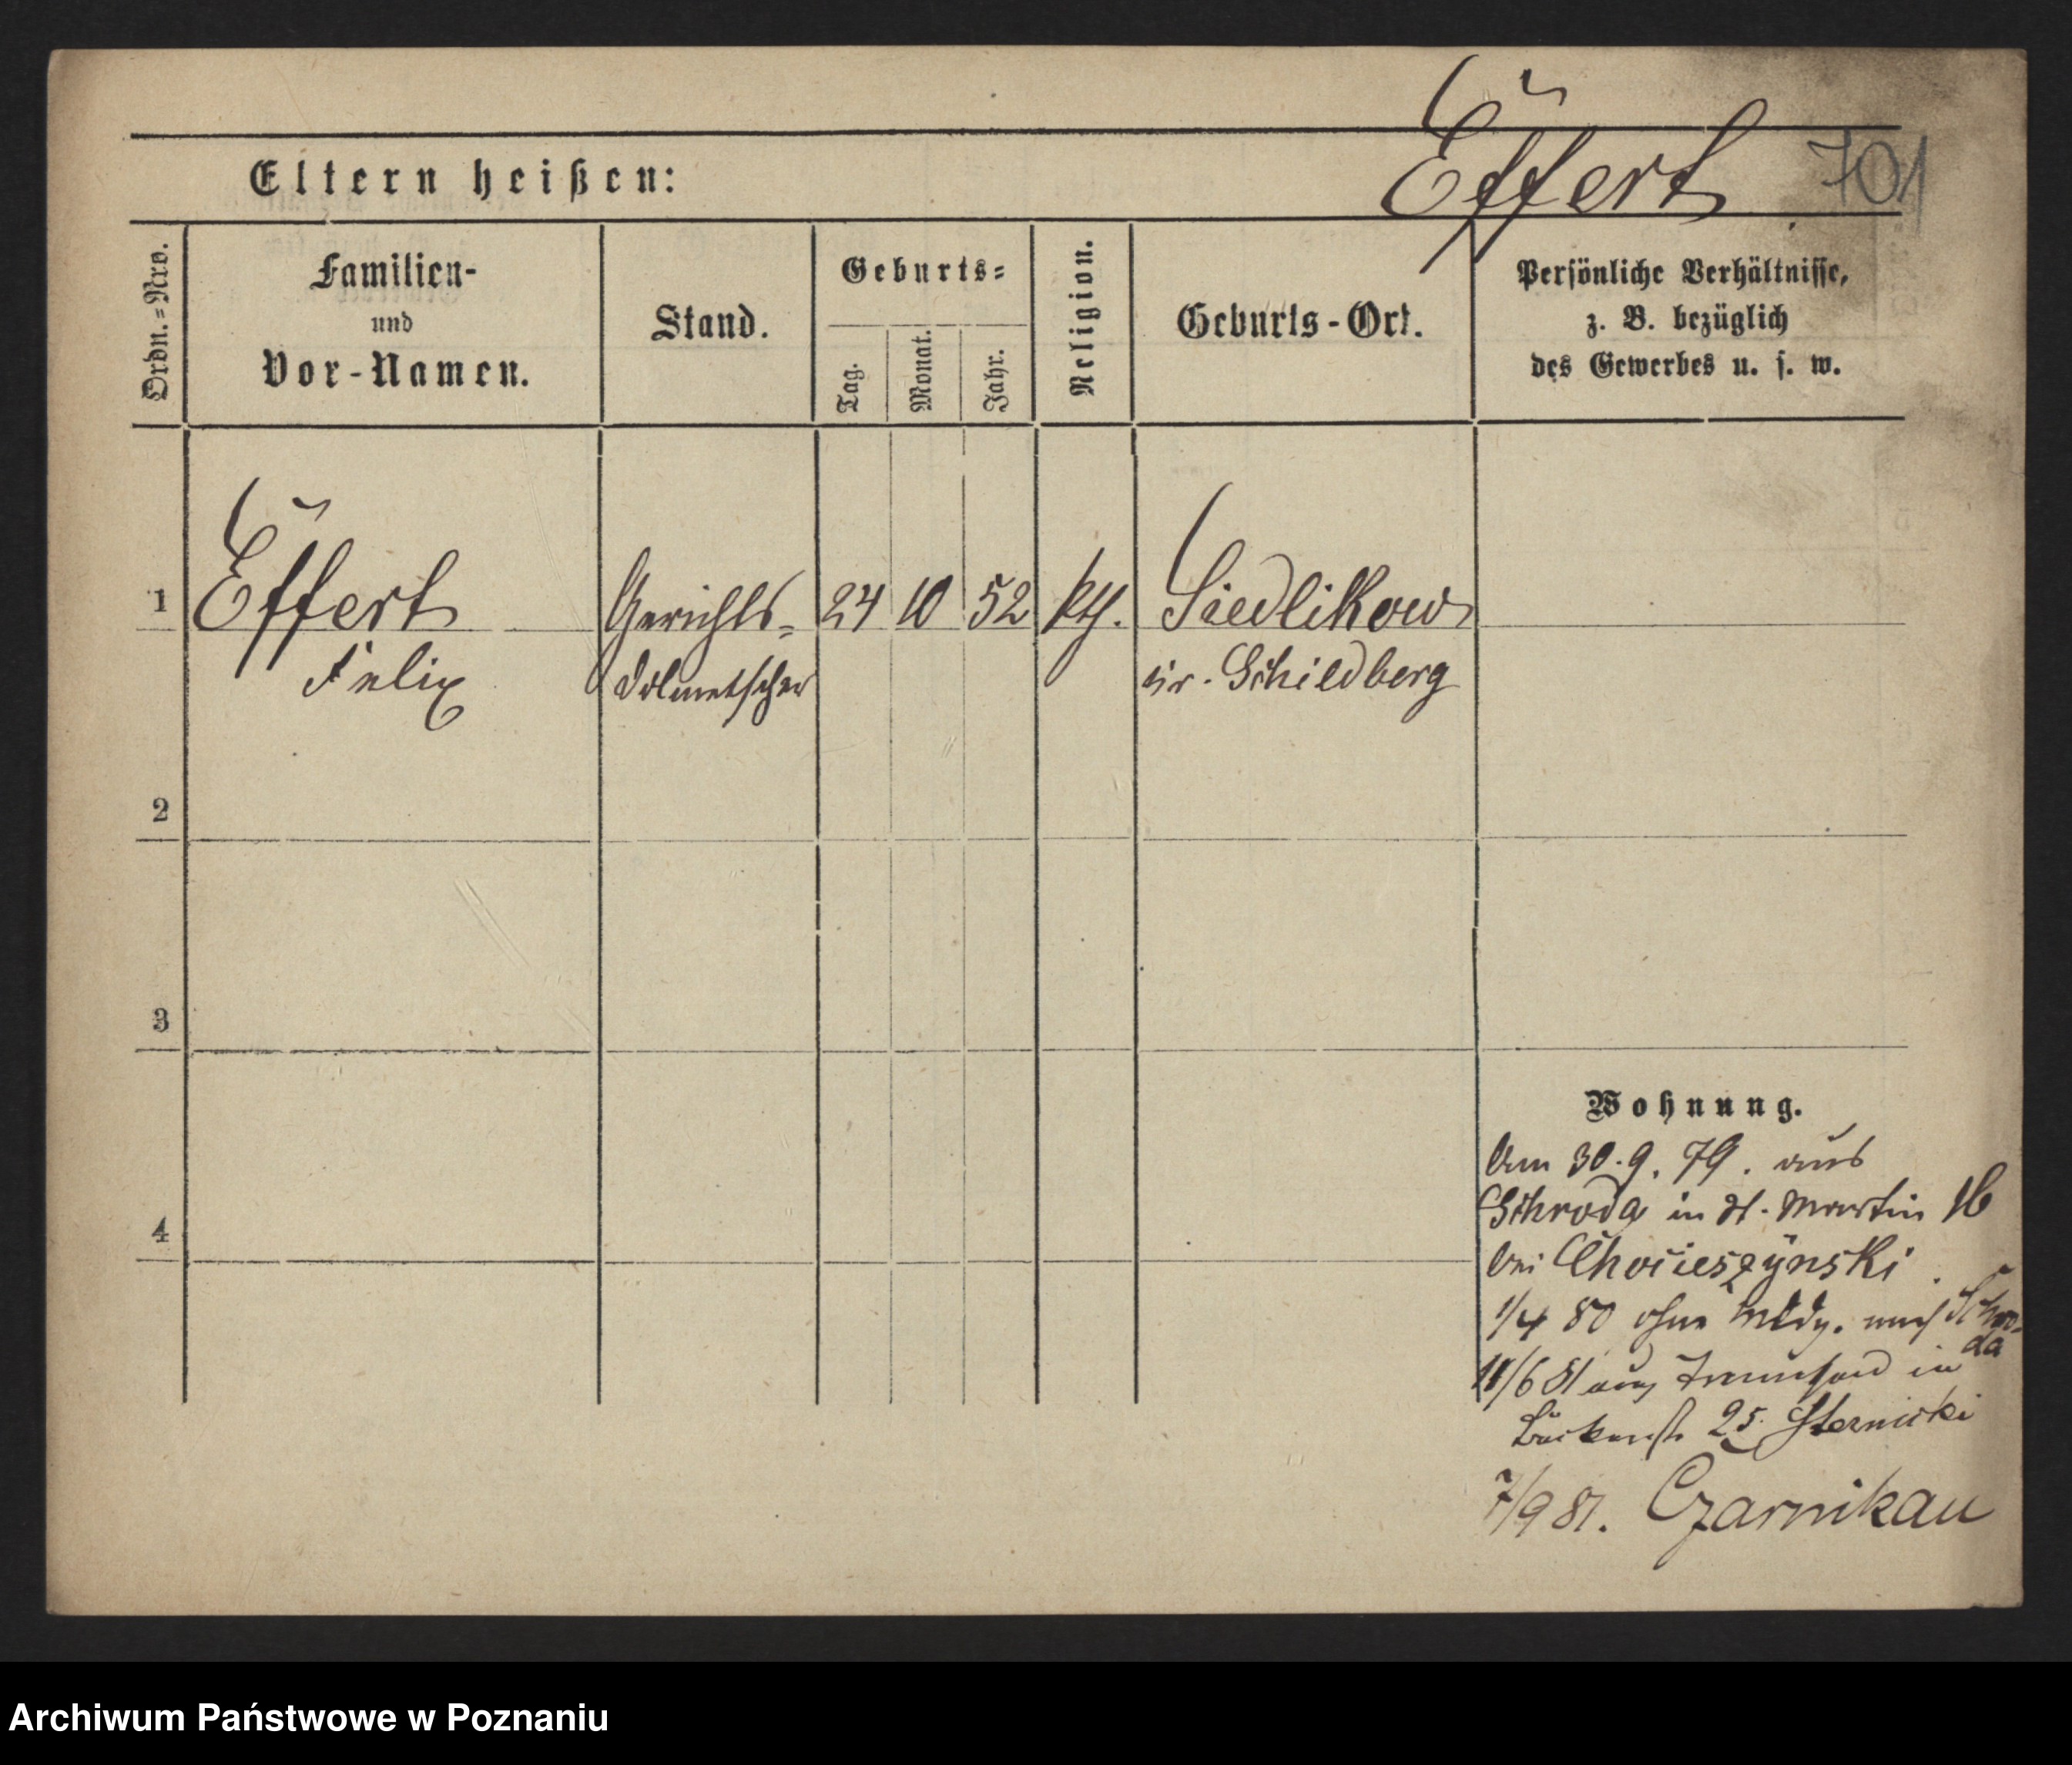 Effert 701
Eltern heißen:
Ordn.=Nro.
Familien-
und
Vor-Namen.
Stand.
Geburts=
Tag.
Monat.
Jahr.
Religion.
Geburts-Ort.
Persönliche Verhältnisse,
z. B. bezüglich
des Gewerbes u. s. w.
1 Effert Gerichts= 24 10 52 kth. Siedlikow
Felix Dolmetscher Kr. Schildberg
2
3
4
Wohnung.
Am 30.9.79. aus
Schroda in St. Martin 16
bei Chocieszynski
1/4 80 ohne Mldg. nach Schro-
da
11/6 81 aus in
Bäckerstr 25. Sternicki
7/9 81. Czarnikau
Archiwum Państwowe w Poznaniu